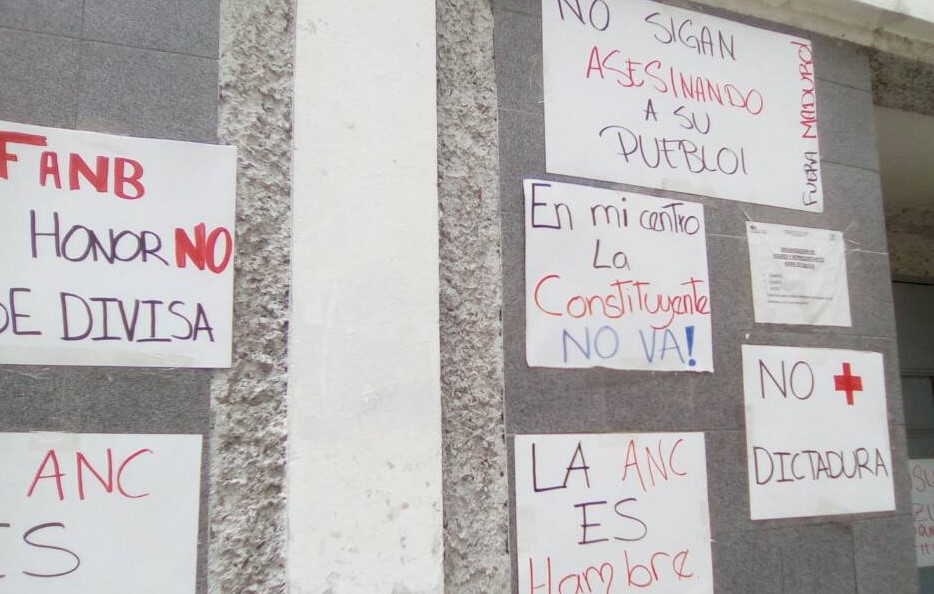 FANB
HONOR NO
DE DIVISA
ANC
ES
NO SIGAN
ASESINANDO
A SU
PUEBLO!
FUERA MADURO!
En mi centro
La
Constituyente
NO VA!
NO +
DICTADURA
LA ANC
ES
Hambre